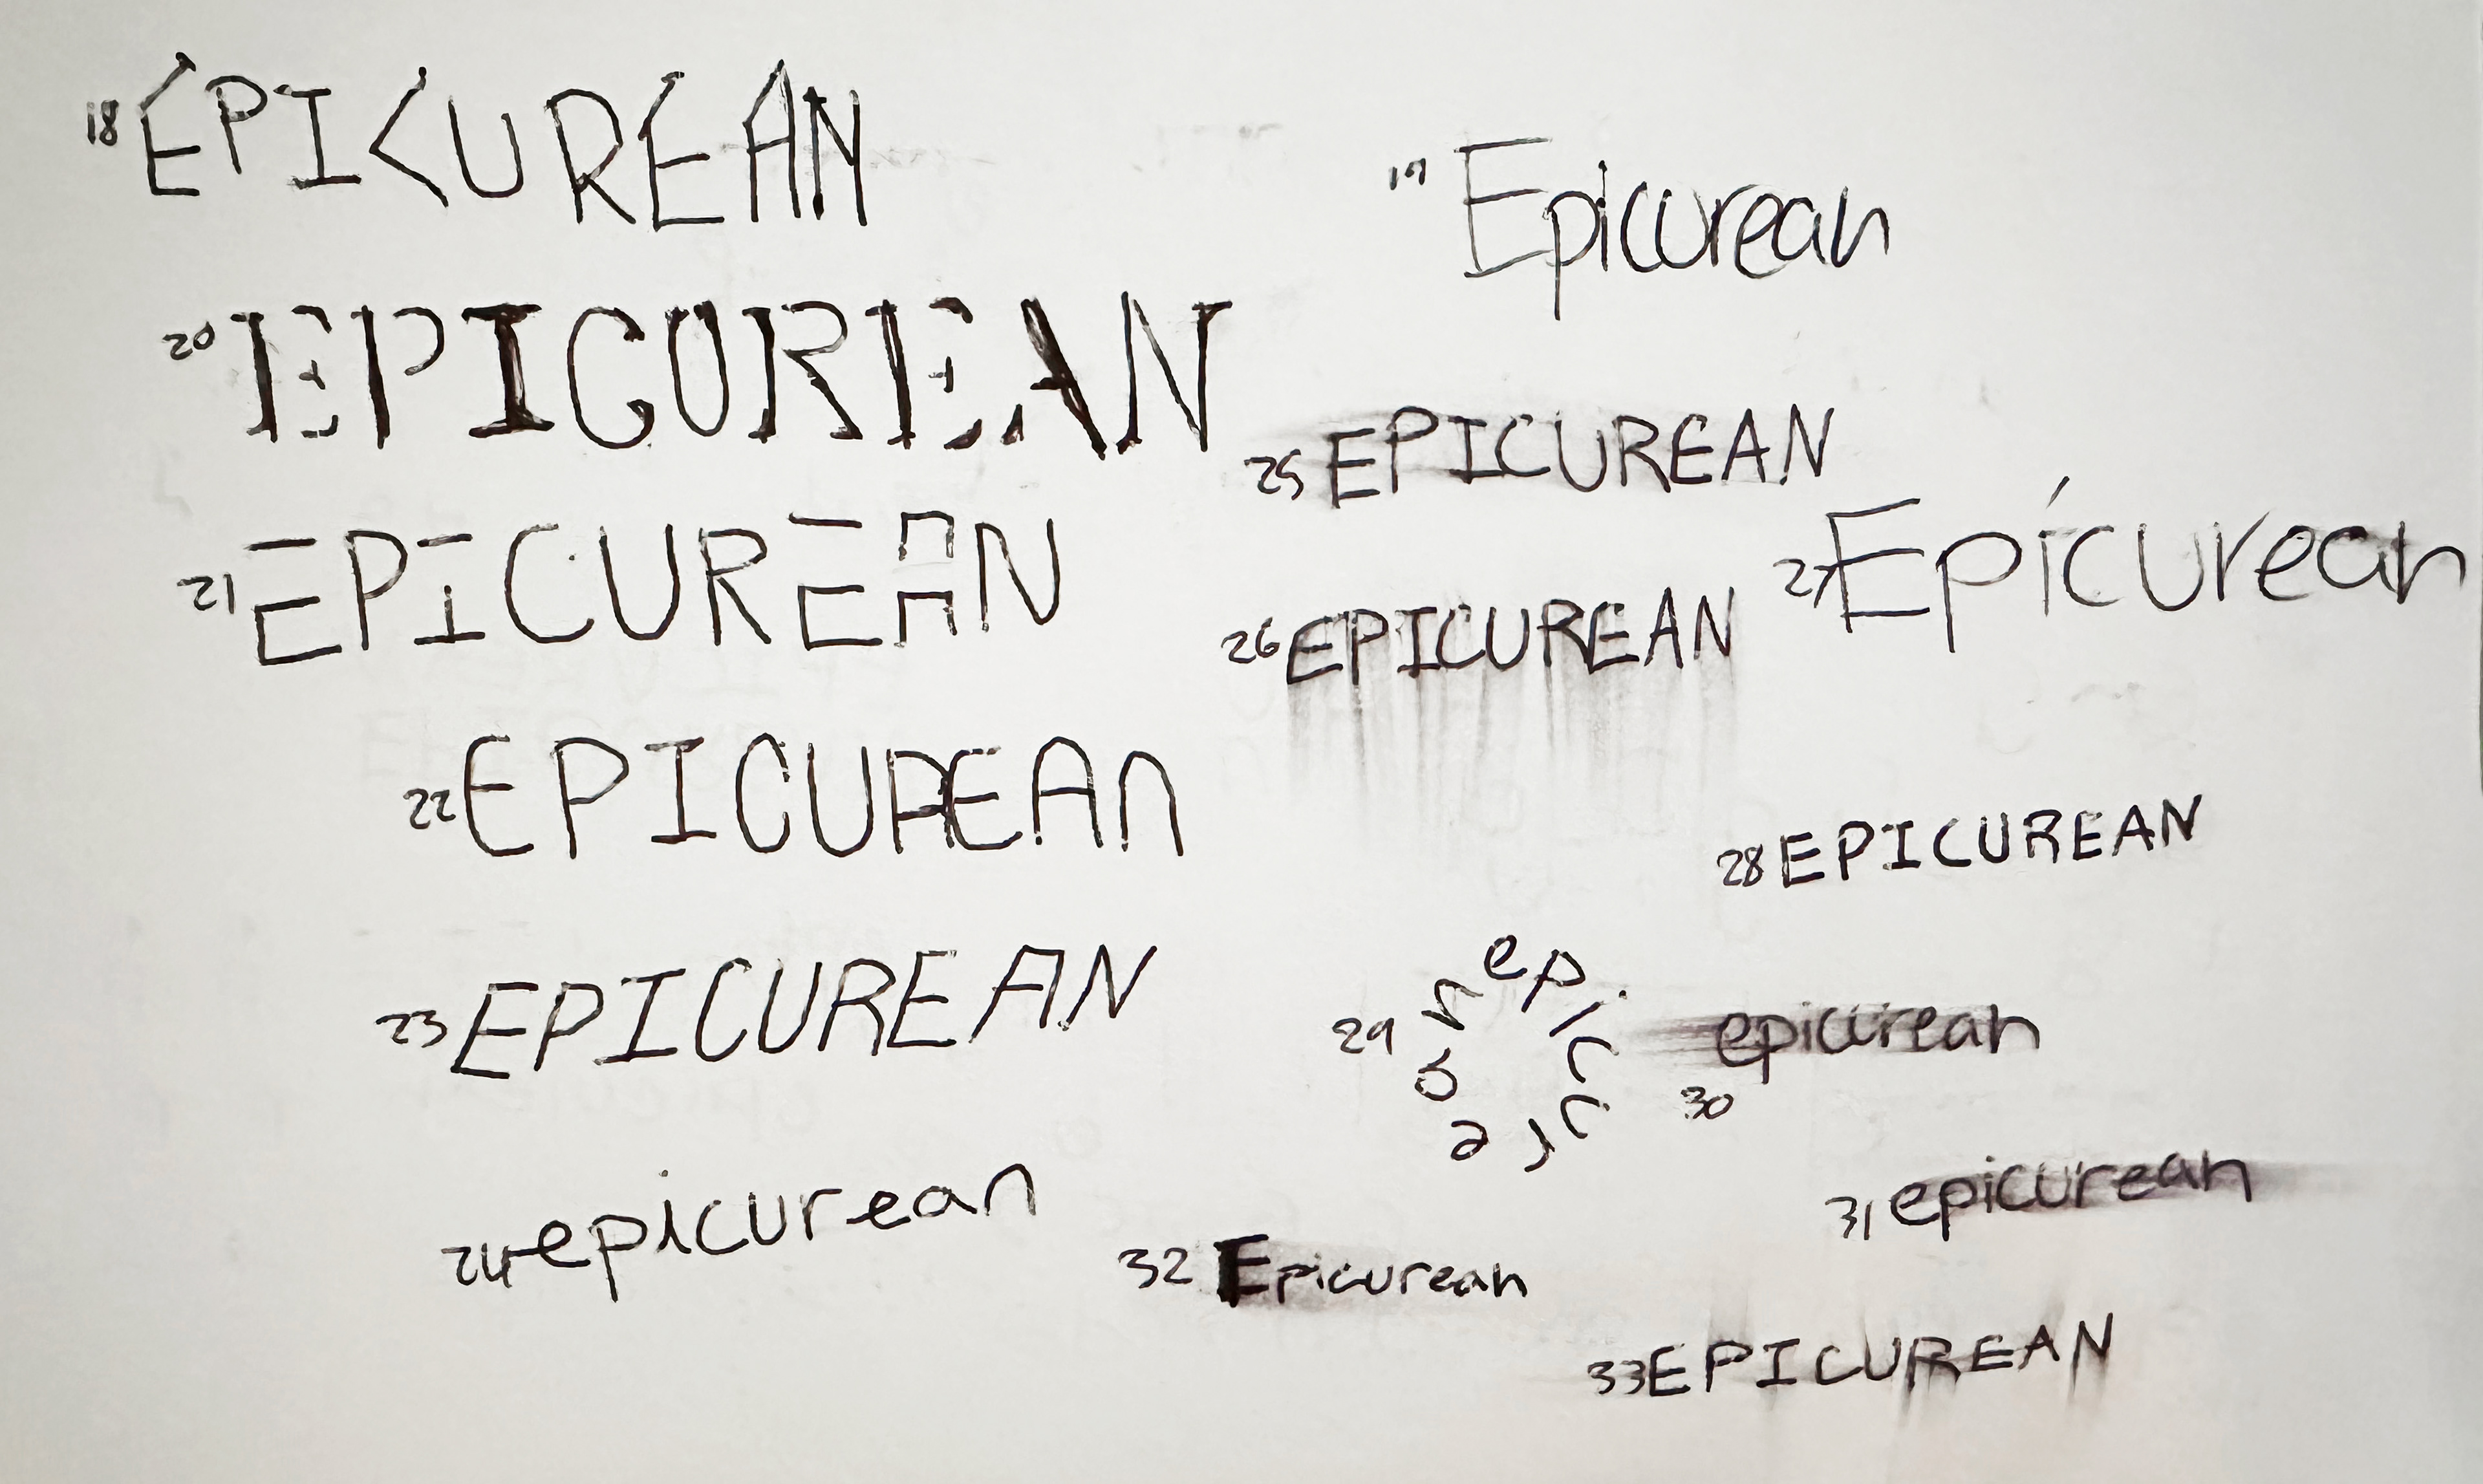 18 EPICUREAN
19 Epicurean
20 EPICUREAN
21 EPICUREAN
22 EPICUREAN
23 EPICUREAN
24 epicurean
25 EPICUREAN
26 EPICUREAN
27 Epicurean
28 EPICUREAN
29 epicurean
30 epicurean
31 epicurean
32 Epicurean
33 EPICUREAN